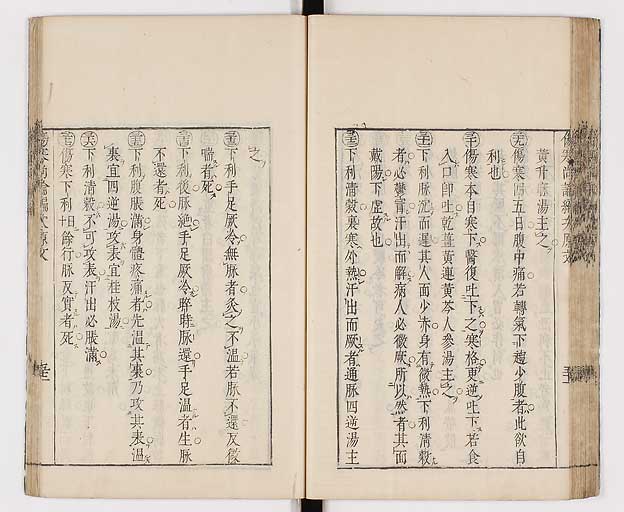 黄升麻湯主之
傷寒四五日腹中痛若轉氣下趨少腹者此欲自
利也
傷寒本自寒下醫復吐下之寒格更逆吐下若食
入口即吐乾薑黄連黄芩人參湯主之
下利脉沉而遲其人面少赤身有微熱下利清穀
者必鬱冒汗出而解病人必微厥所以然者其面
戴陽下虚故也
下利清穀裏寒外熱汗出而厥者通脉四逆湯主
之
下利手足厥冷無脉者灸之不温若脉不還反微
喘者死
下利後脉絶手足厥冷晬時脉還手足温者生脉
不還者死
下利腹脹滿身體疼痛者先温其裏乃攻其表温
裏宜四逆湯攻表宜桂枝湯
下利清穀不可攻表汗出必脹滿
傷寒下利十日餘行脉反實者死